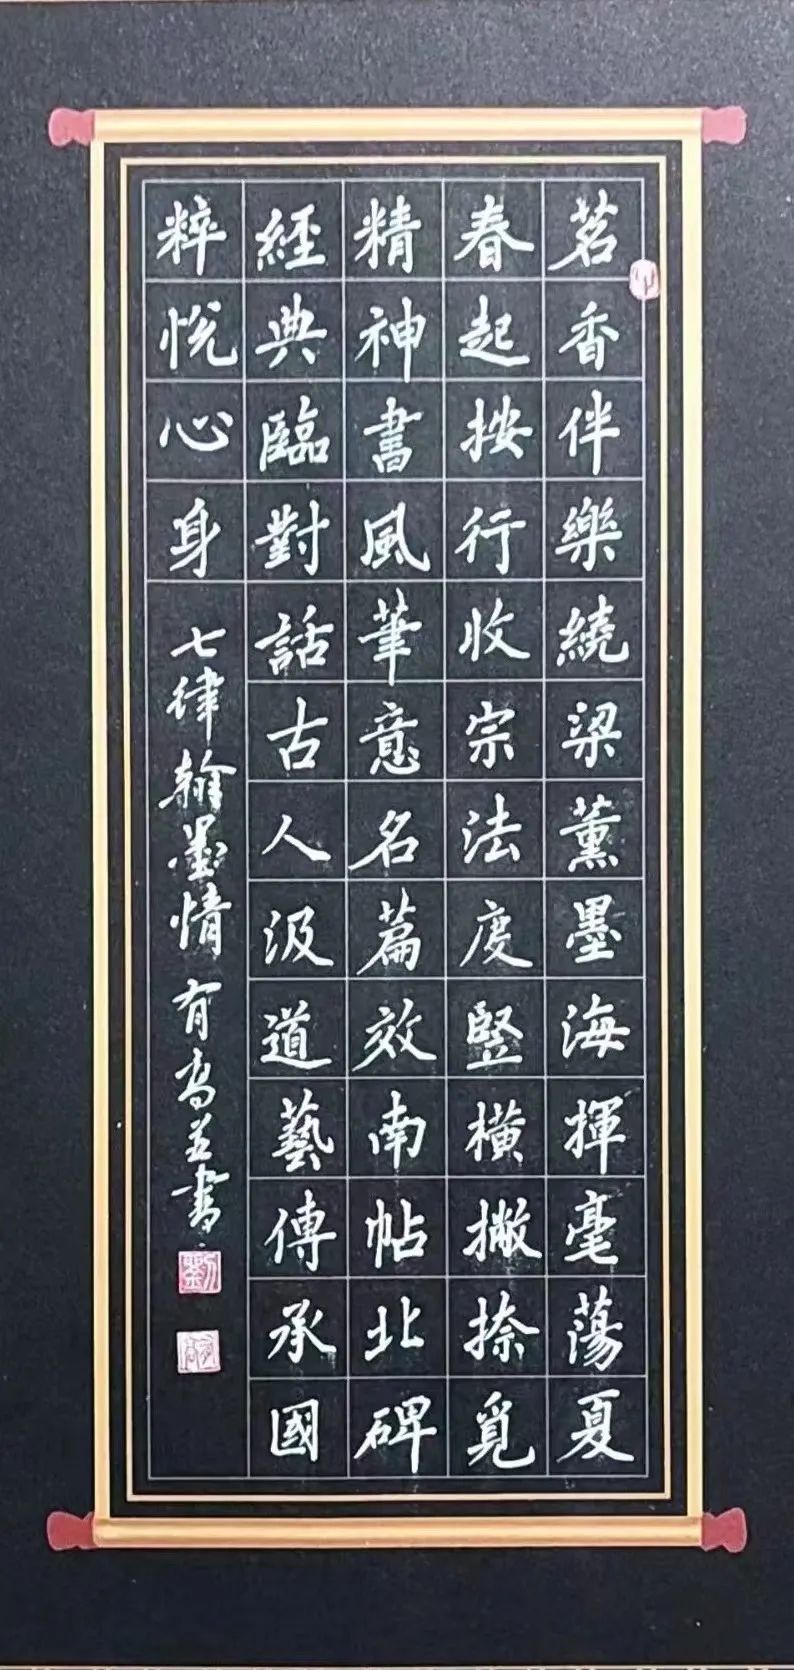 茗香伴樂繞梁薰墨海揮毫蕩夏
春起按行收宗法度竪橫撇捺覓
精神書風筆意名篇效南帖北碑
經典臨對話古人汲道藝傳承國
粹悦心身
七律翰墨情有為並書